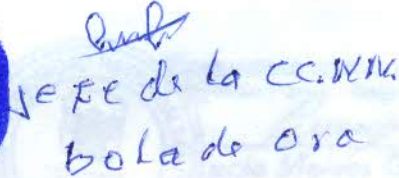 Jefe de la CC.NN.
Bola de Ora